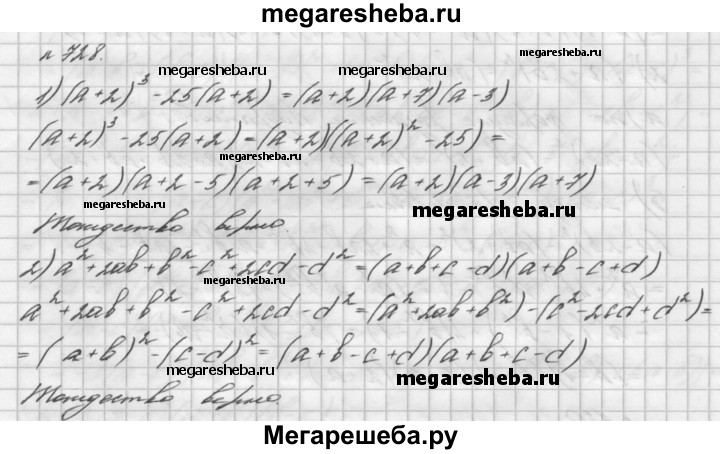 megaresheba.ru
n 728.
megaresheba.ru megaresheba.ru megaresheba.ru
1) (a+2)³ - 25(a+2) = (a+2)(a+7)(a-3)
(a+2)³ - 25(a+2) = (a+2)((a+2)² - 25) =
megaresheba.ru
= (a+2)(a+2-5)(a+2+5) = (a+2)(a-3)(a+7)
megaresheba.ru megaresheba.ru
Тождество верно.
2) a² + 2ab + b² - c² + 2cd - d² = (a+b+c-d)(a+b-c+d)
megaresheba.ru
a² + 2ab + b² - c² + 2cd - d² = (a² + 2ab + b²) - (c² - 2cd + d²) =
= (a+b)² - (c-d)² = (a+b-c+d)(a+b+c-d)
megaresheba.ru megaresheba.ru
Тождество верно.
Мегарешеба.ру